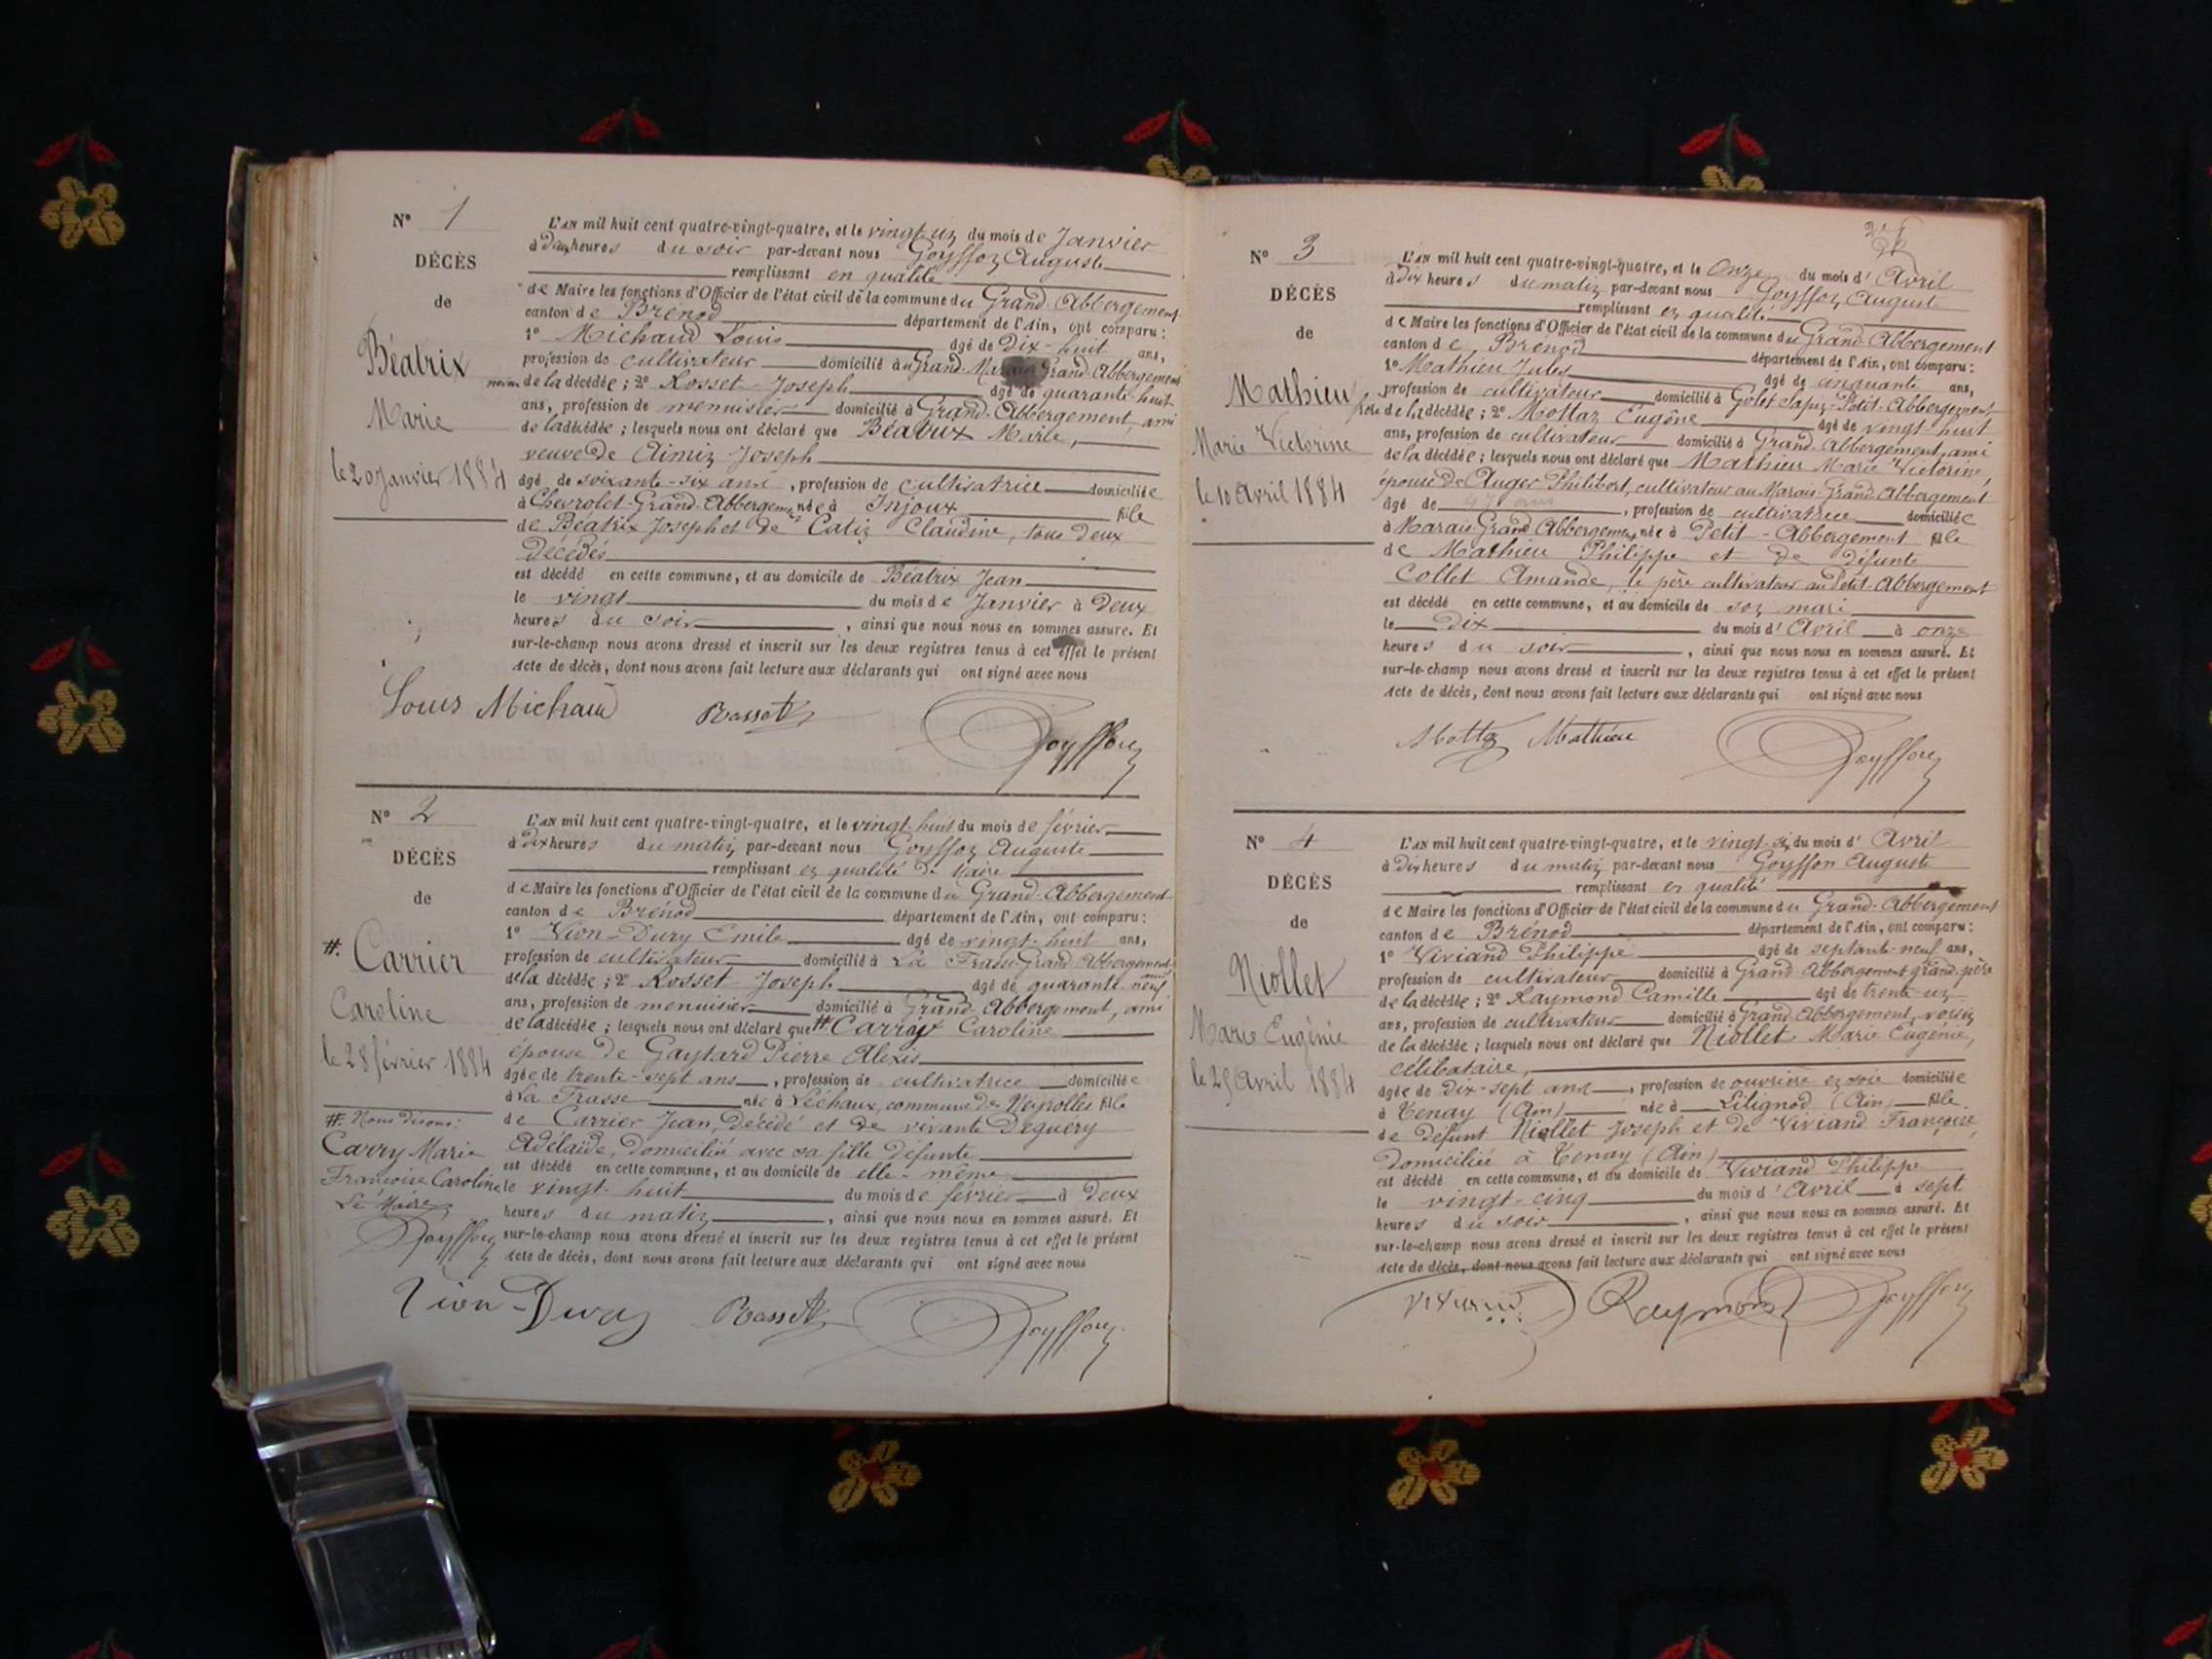 N° 1
DÉCÈS
de
Béatrix
Marie
le 20 Janvier 1884
L'AN mil huit cent quatre-vingt-quatre, et le vingt-un du mois de Janvier
à dix heures du soir par-devant nous Goyffon Auguste
remplissant en qualité
de Maire les fonctions d'Officier de l'état civil de la commune du Grand-Abbergement
canton de Brénod département de l'Ain, ont comparu :
1° Michaud Louis âgé de Dix-huit ans,
profession de cultivateur domicilié à Grand-Abbergement
neveu de la décédée ; 2° Rosset Joseph âgé de quarante-huit
ans, profession de menuisier domicilié à Grand-Abbergement, ami
de la décédée ; lesquels nous ont déclaré que Béatrix Marie,
veuve de Aimin Joseph
âgé de soixante-six ans, profession de cultivatrice domiciliée
à Chevrolet-Grand-Abbergement née à Injoux fille
de Béatrix Joseph et de Catin Claudine, tous deux
décédés
est décédé en cette commune, et au domicile de Béatrix Jean
le vingt du mois de Janvier à Deux
heures du soir, ainsi que nous nous en sommes assuré. Et
sur-le-champ nous avons dressé et inscrit sur les deux registres tenus à cet effet le présent
Acte de décès, dont nous avons fait lecture aux déclarants qui ont signé avec nous
Louis Michaud Rosset Goyffon
N° 2
DÉCÈS
de
#. Carrier
Caroline
le 28 février 1884
#. Nous disons :
Carry Marie
Françoise Caroline
Le Maire
Goyffon
L'AN mil huit cent quatre-vingt-quatre, et le vingt-huit du mois de février
à dix heures du matin par-devant nous Goyffon Auguste
remplissant en qualité de Maire
de Maire les fonctions d'Officier de l'état civil de la commune du Grand-Abbergement
canton de Brénod département de l'Ain, ont comparu :
1° Vion-Dury Emile âgé de vingt-huit ans,
profession de cultivateur domicilié à La Frasse Grand-Abbergement ami
de la décédée ; 2° Rosset Joseph âgé de quarante-neuf
ans, profession de menuisier domicilié à Grand-Abbergement, ami
de la décédée ; lesquels nous ont déclaré que #. Caroline
épouse de Gaytard Pierre Alexis
âgée de trente-sept ans, profession de cultivatrice domiciliée
à La Frasse née à Léchaux, commune de Neyrolles fille
de Carrier Jean, décédé et de vivante Deguery
Adélaïde, domiciliée avec sa fille défunte
est décédé en cette commune, et au domicile de elle-même
le vingt-huit du mois de février à Deux
heures du matin, ainsi que nous nous en sommes assuré. Et
sur-le-champ nous avons dressé et inscrit sur les deux registres tenus à cet effet le présent
Acte de décès, dont nous avons fait lecture aux déclarants qui ont signé avec nous
Vion-Dury Rosset Goyffon
N° 3
DÉCÈS
de
Mathieu
Marie Victorine
le 10 Avril 1884
L'AN mil huit cent quatre-vingt-quatre, et le Onze du mois d'Avril
à dix heures du matin par-devant nous Goyffon Auguste
remplissant en qualité
de Maire les fonctions d'Officier de l'état civil de la commune du Grand-Abbergement
canton de Brénod département de l'Ain, ont comparu :
1° Mathieu Jules âgé de cinquante ans,
profession de cultivateur domicilié à Golet Sapin-Petit-Abbergement
frère de la décédée ; 2° Mottaz Eugène âgé de vingt-huit
ans, profession de cultivateur domicilié à Grand-Abbergement, ami
de la décédée ; lesquels nous ont déclaré que Mathieu Marie Victorine,
épouse de Auger Philibert, cultivateur au Marais-Grand-Abbergement
âgé de 47 ans, profession de cultivatrice domiciliée
à Marais Grand Abbergement, née à Petit-Abbergement fille
de Mathieu Philippe et de défunte
Collet Amande, le père cultivateur au Petit-Abbergement
est décédé en cette commune, et au domicile de son mari
le Dix du mois d'Avril à onze
heures du soir, ainsi que nous nous en sommes assuré. Et
sur-le-champ nous avons dressé et inscrit sur les deux registres tenus à cet effet le présent
Acte de décès, dont nous avons fait lecture aux déclarants qui ont signé avec nous
Mottaz Mathieu Goyffon
N° 4
DÉCÈS
de
Niollet
Marie Eugénie
le 25 Avril 1884
L'AN mil huit cent quatre-vingt-quatre, et le vingt-six du mois d'Avril
à dix heures du matin par-devant nous Goyffon Auguste
remplissant en qualité
de Maire les fonctions d'Officier de l'état civil de la commune du Grand-Abbergement
canton de Brénod département de l'Ain, ont comparu :
1° Viviand Philippe âgé de septante-neuf ans,
profession de cultivateur domicilié à Grand Abbergement grand-père
de la décédée ; 2° Raymond Camille âgé de trente-un
ans, profession de cultivateur domicilié à Grand-Abbergement, voisin
de la décédée ; lesquels nous ont déclaré que Niollet Marie Eugénie,
célibataire,
âgée de dix-sept ans, profession de ouvrière en soie domiciliée
à Tenay (Ain) née à Lilignod (Ain) fille
de défunt Niollet Joseph et de Viviand Françoise,
domiciliée à Tenay (Ain)
est décédé en cette commune, et au domicile de Viviand Philippe
le vingt-cinq du mois d'Avril à sept
heures du soir, ainsi que nous nous en sommes assuré. Et
sur-le-champ nous avons dressé et inscrit sur les deux registres tenus à cet effet le présent
Acte de décès, dont nous avons fait lecture aux déclarants qui ont signé avec nous
Raymond Goyffon